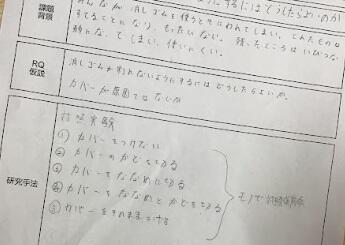 課題
背景
みんなが消しゴムを使うときにわれてしまい、とれたものは
すてることになり、もったいない。残ったところはいびつな
形になってしまい、使いにくい。
RQ
仮説
消しゴムが割れないようにするにはどうしたらよいか。
カバーが原因ではないか
研究手法
対照実験
① カバーをつけない
② カバーのかどをきる
③ カバーをななめにきる
④ カバーをななめとかどをきる
⑤ カバーをそのままつける